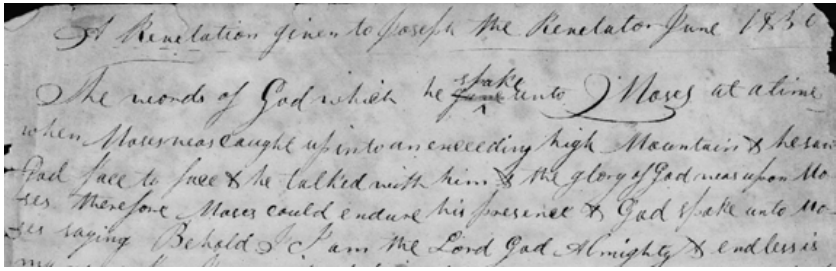 A Revelation given to Joseph the Revelator June 1830
The words of God which he gave spake unto Moses at a time
when Moses was caught up into an exceeding high Mountain & he saw
God face to face & he talked with him & the glory of God was upon Mo
ses therefore Moses could endure his presence & God spake unto Mo
ses saying Behold I I am the Lord God Almighty & endless is
my